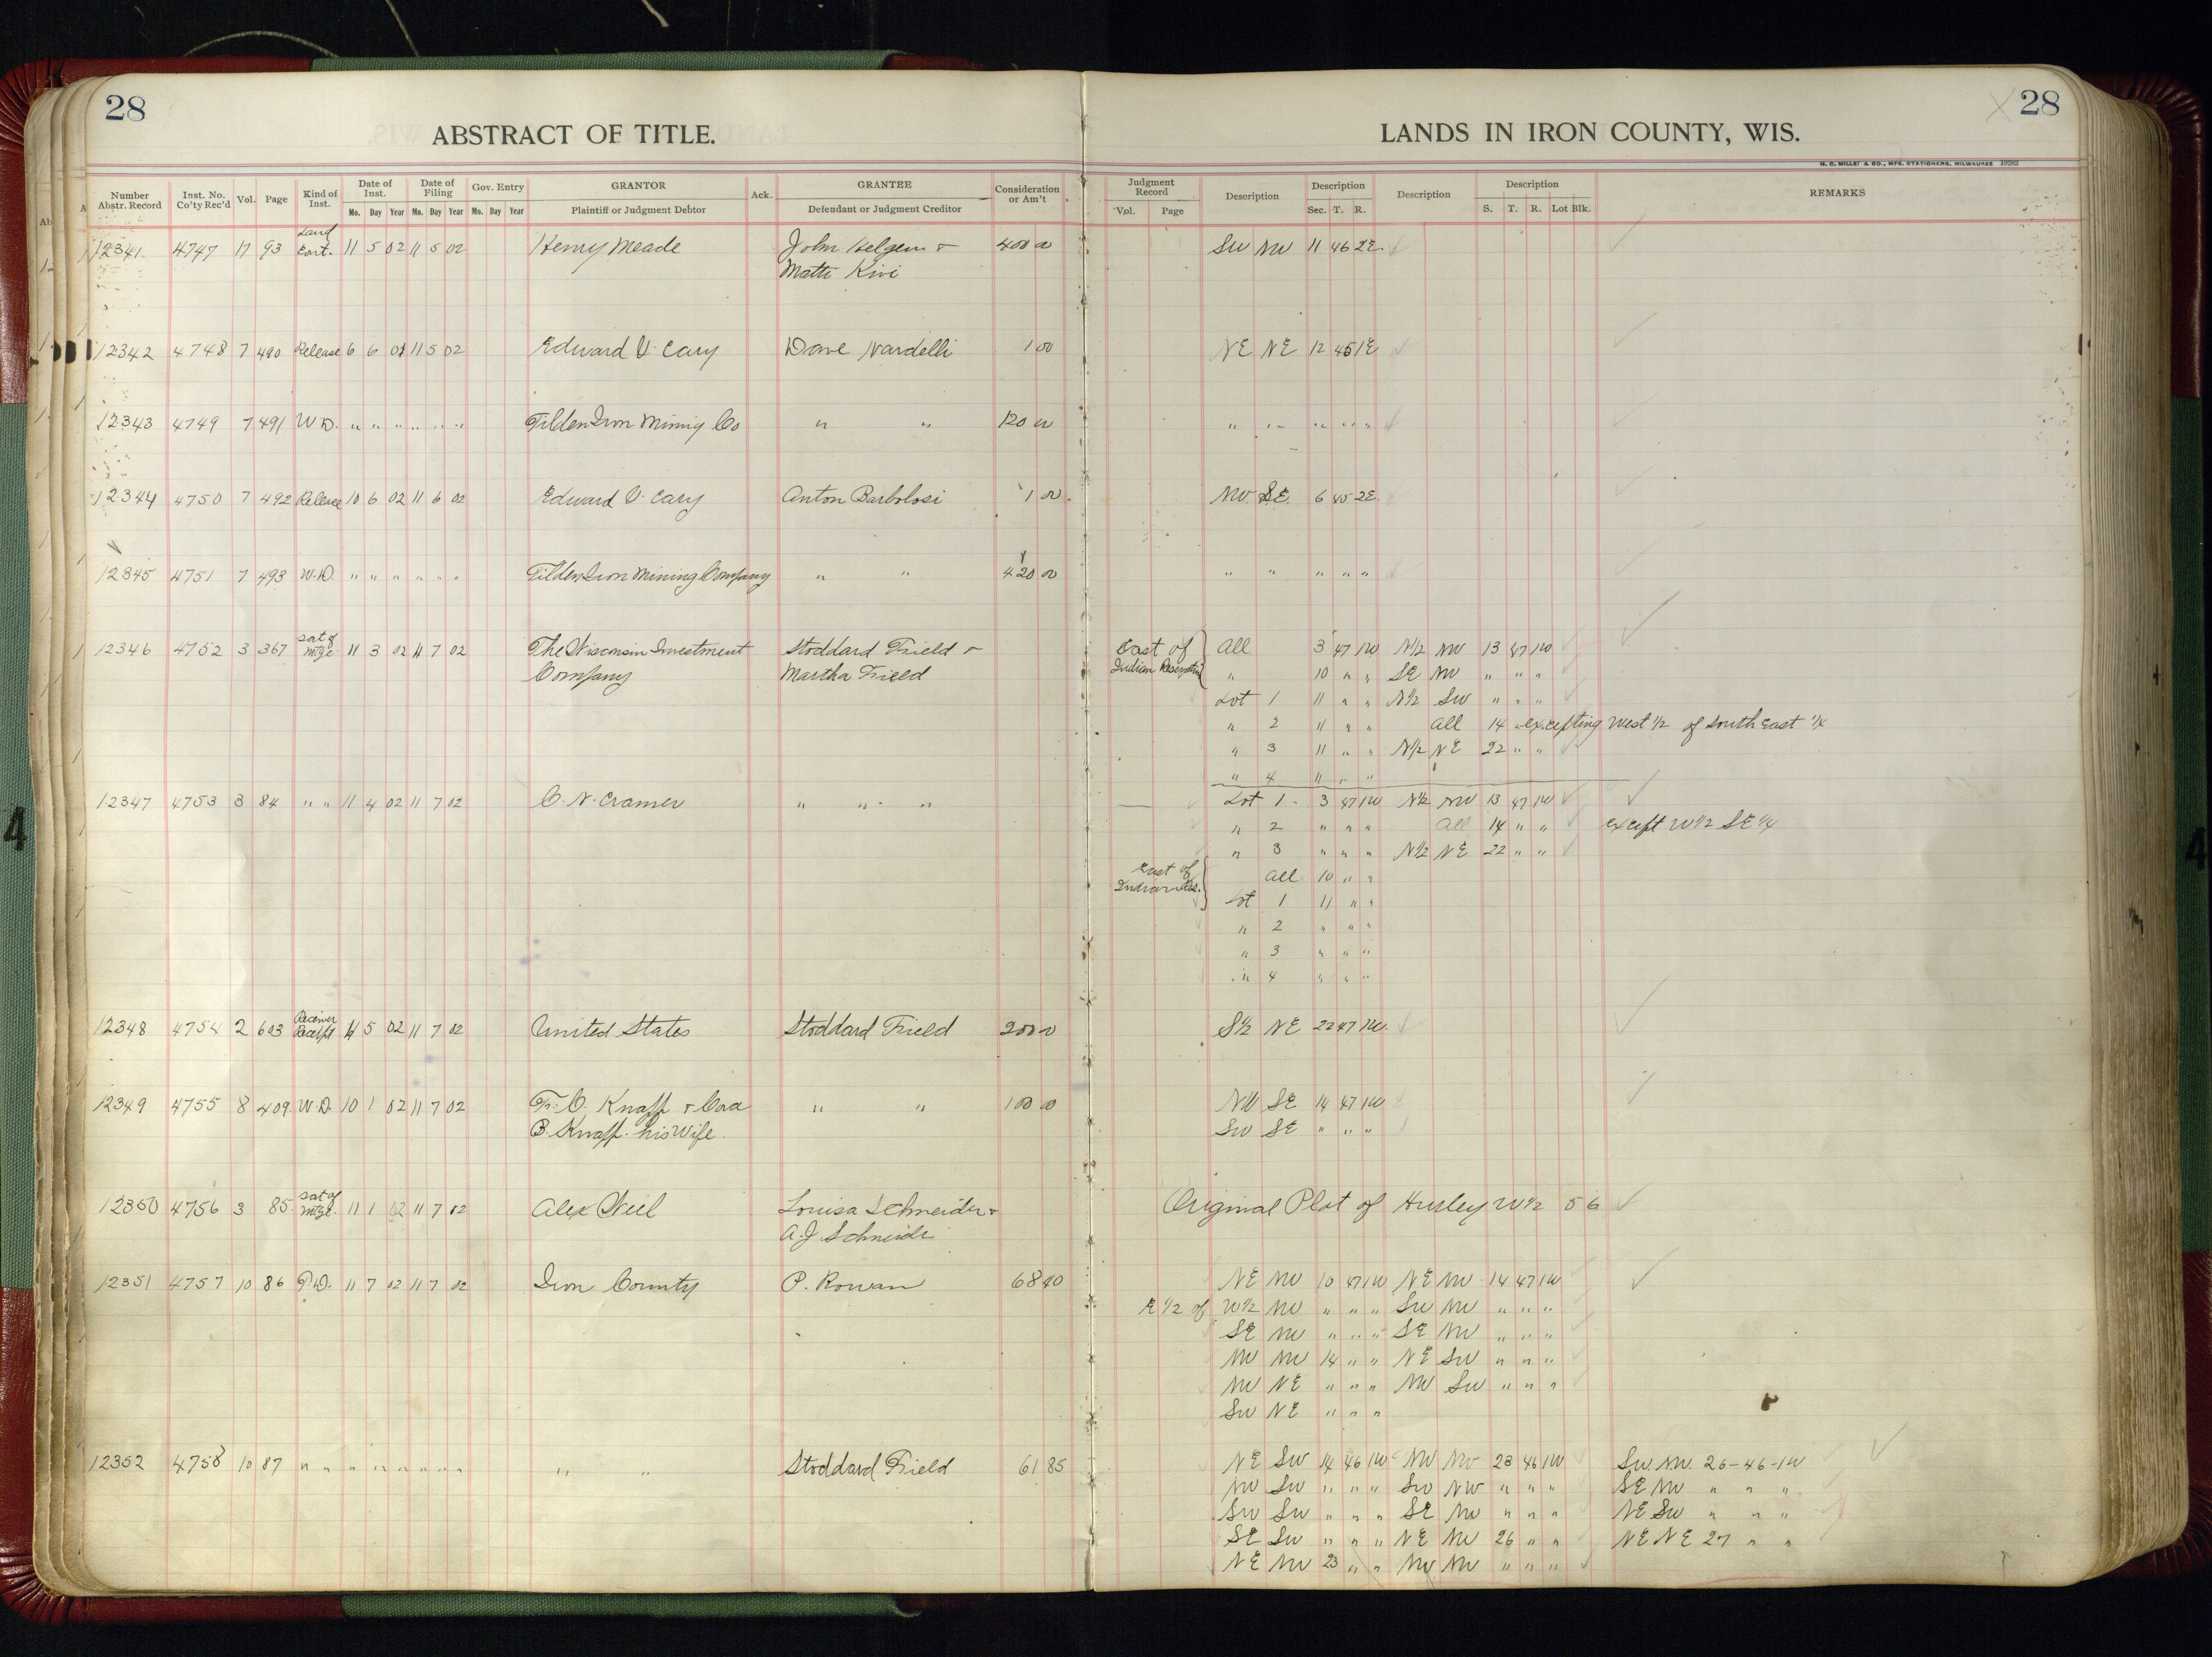 28
ABSTRACT OF TITLE.
LANDS IN IRON COUNTY, WIS.
28
H. C. MILLER & CO., MFG. STATIONERS, MILWAUKEE 19282
Number Abstr. Record | Inst. No. Co'ty Rec'd | Vol. | Page | Kind of Inst. | Date of Inst. Mo. Day Year | Date of Filing Mo. Day Year | Gov. Entry Mo. Day Year | GRANTOR Plaintiff or Judgment Debtor | Ack. | GRANTEE Defendant or Judgment Creditor | Consideration or Am't | Judgment Record Vol. Page | Description | Description Sec. T. R. | Description | Description S. T. R. Lot Blk. | REMARKS
12341 4747 17 93 Land Cont. 11 5 02 11 5 02 Henry Meade John Helgem & 400 00 SW NW 11 46 2E
Matti Kivi
12342 4748 7 490 Release 6 6 02 11 5 02 Edward V. Cary Dave Nardelli 1 00 NE NE 12 45 1E
12343 4749 7 491 W.D. " " " " " " Tilden Iron Mining Co " " 120 00 " " " " "
12344 4750 7 492 Release 10 6 02 11 6 02 Edward V. Cary Anton Barbolosi 1 00 NW SE 6 45 2E
12345 4751 7 493 W.D. " " " " " " Tilden Iron Mining Company " " 420 00 " " " " "
12346 4752 3 367 Sat of Mtge 11 3 02 11 7 02 The Wisconsin Investment Stoddard Field & East of All 3 47 1W N½ NW 13 47 1W
Company Martha Field Indian Reservation " 10 " " SE NW " " "
Lot 1 11 " " N½ SW " " "
" 2 11 " " All 14 " excepting West ½ of South East ¼
" 3 11 " " N½ NE 22 " "
" 4 11 " "
12347 4753 3 84 " " 11 4 02 11 7 02 C. N. Cramer " " " Lot 1 3 47 1W N½ NW 13 47 1W
" 2 " " " All 14 " " except W½ SE¼
" 3 " " " N½ NE 22 " "
East of Indian Res. All 10 " "
Lot 1 11 " "
" 2 " " "
" 3 " " "
" 4 " " "
12348 4754 2 603 Receiver Receipt 11 5 02 11 7 02 United States Stoddard Field 200 00 S½ NE 22 47 1W
12349 4755 8 409 W.D. 10 1 02 11 7 02 F. C. Knapp & Cora " " 100 00 NW SE 14 47 1W
B. Knapp his Wife. SW SE " " "
12350 4756 3 85 Sat of Mtge. 11 1 02 11 7 02 Alex Weil Louisa Schneider & Original Plat of Hurley W½ 5 6
A. J. Schneider
12351 4757 10 86 T.D. 11 7 02 11 7 02 Iron County P. Rowan 68 40 NE NW 10 47 1W NE NW 14 47 1W
E½ of W½ NW " " " SW NW " " "
SE NW " " " SE NW " " "
NW NW 14 " " NE SW " " "
NW NE " " " NW SW " " "
SW NE " " "
12352 4758 10 87 " " " " " " " " " " Stoddard Field 61 85 NE SW 14 46 1W NW NW 23 46 1W SW NW 26-46-1W
NW SW " " " SW NW " " " SE NW " " "
SW SW " " " SE NW " " " NE SW " " "
SE SW " " " NE NW 26 " " NE NE 27 " "
NE NW 23 " " NW NW " " "